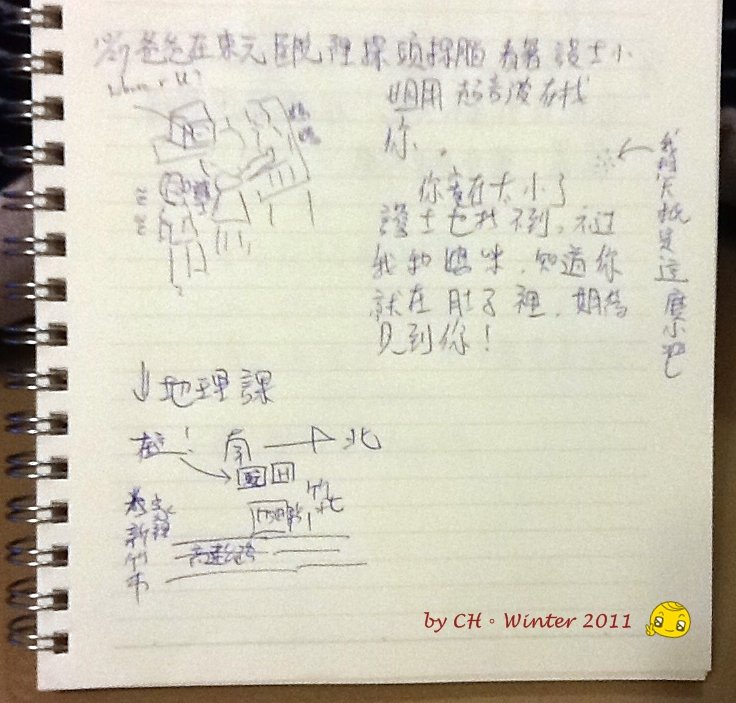 爸爸在東元醫院裡探頭探腦 看著護士小
姐用超音波在找
你。
你實在太小了
護士也找不到。不過
我和媽咪，知道你
就在肚子裡，期待
見到你！
我猜你只是這麼小吧
媽媽
↓ 地理課
在這！ 南 → 北
竹北
高速公路
新竹市
by CH。Winter 2011